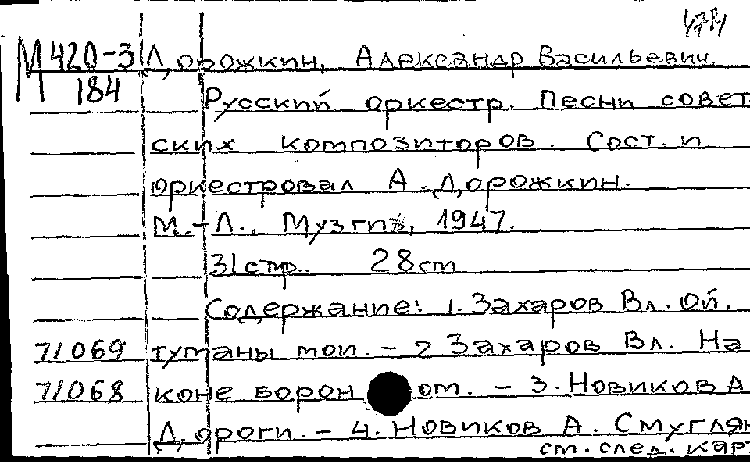 М 420-3 Дорожкин, Александр Васильевич.
184 Русский оркестр. Песни совет
ских композиторов. Сост. и
оркестровал А. Дорожкин.
М.-Л., Музгиз, 1947.
31 стр. 28 cm
Содержание: 1. Захаров Вл. Ой,
71069 туманы мои. - 2 Захаров Вл. На
71068 коне ворон ом. - 3. Новиков А
Дороги. - 4. Новиков А. Смуглян
см. след. кар